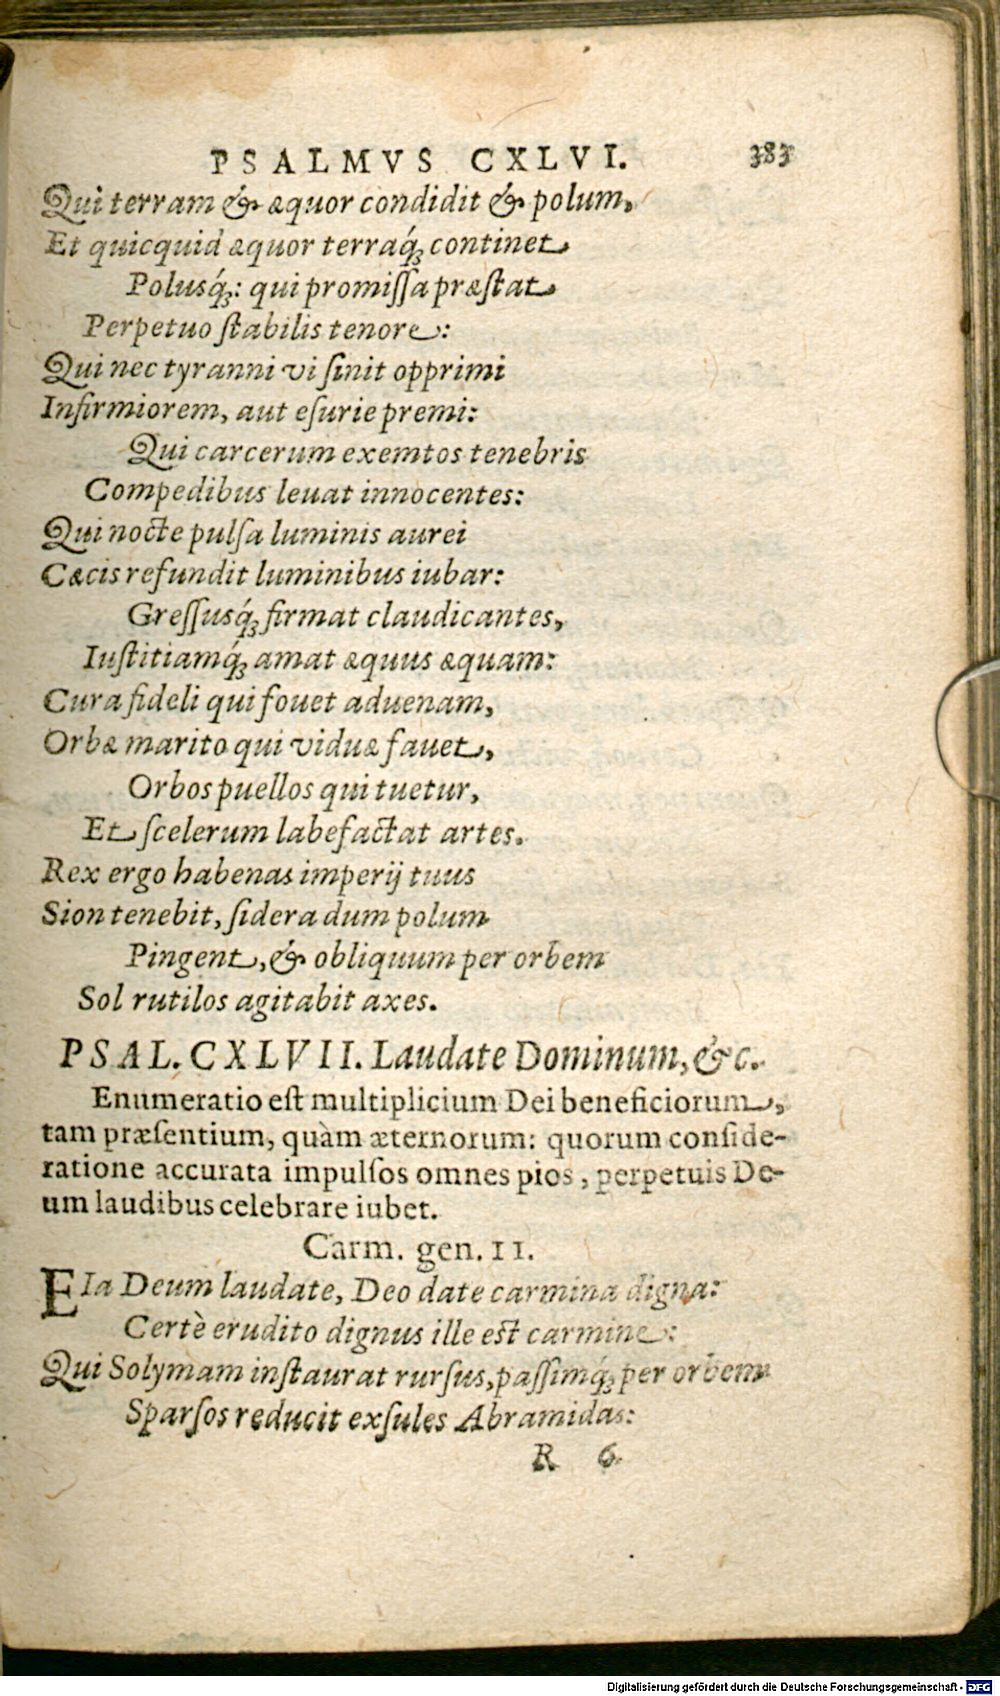 PSALMVS CXLVI. 383
Qui terram & æquor condidit & polum,
Et quicquid æquor terraq́; continet,
Polusq́;: qui promiſſa præſtat,
Perpetuo ſtabilis tenore:
Qui nec tyranni vi ſinit opprimi
Infirmiorem, aut eſurie premi:
Qui carcerum exemtos tenebris
Compedibus leuat innocentes:
Qui nocte pulſa luminis aurei
Cæcis refundit luminibus iubar:
Greſſusq́; firmat claudicantes,
Iuſtitiamq́; amat æquus æquam:
Cura fideli qui fouet aduenam,
Orbæ marito qui viduæ fauet,
Orbos puellos qui tuetur,
Et ſcelerum labefactat artes.
Rex ergo habenas imperij tuus
Sion tenebit, ſidera dum polum
Pingent, & obliquum per orbem
Sol rutilos agitabit axes.
PSAL. CXLVII. Laudate Dominum, &c.
Enumeratio eſt multiplicium Dei beneficiorum,
tam præſentium, quàm æternorum: quorum conſide-
ratione accurata impulſos omnes pios, perpetuis De-
um laudibus celebrare iubet.
Carm. gen. II.
EIa Deum laudate, Deo date carmina digna:
Certè erudito dignus ille eſt carmine:
Qui Solymam inſtaurat rurſus, paſſimq́; per orbem
Sparſos reducit exſules Abramidas:
R 6.
Digitalisierung gefördert durch die Deutsche Forschungsgemeinschaft - DFG